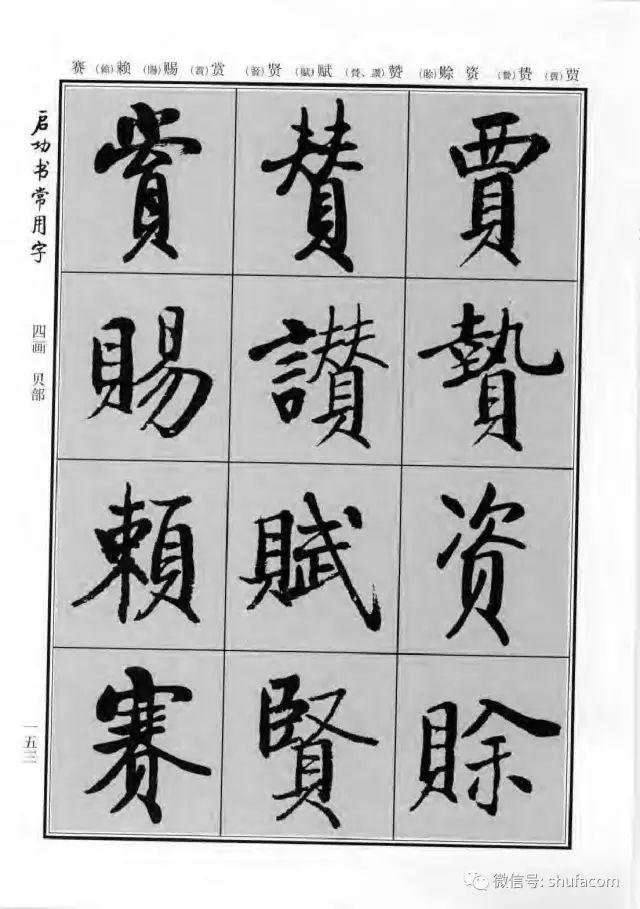 贾(賈) 贽(贄) 资 赊(賒) 赞(賛、讚) 赋(賦) 贤(賢) 赏(賞) 赐(賜) 赖(頼) 赛
賈贄资賒
賛讚賦賢
賞賜頼赛
启功书常用字
四画 贝部
一五三
微信号: shufacom